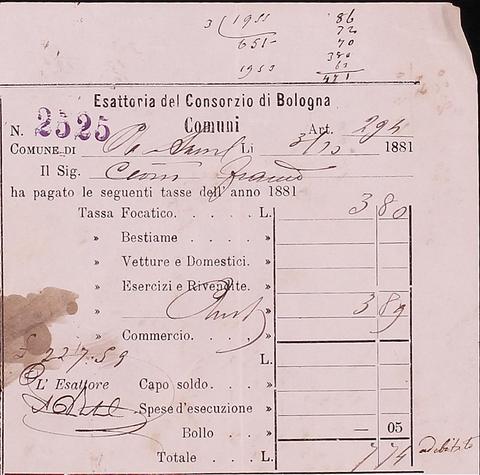 3 1955 86
651 72
70
1953 380
63
471
Esattoria del Consorzio di Bologna
N. 2525 Comuni Art. 294
COMUNE DI Li 3/10 1881
Il Sig.
ha pagato le seguenti tasse dell'anno 1881
Tassa Focatico. . . . . L. 3 80
» Bestiame . . . . . »
» Vetture e Domestici. »
» Esercizi e Rivendite. »
» » 3 89
» Commercio. . . . . »
£ 227.59 L.
L' Esattore Capo soldo. . . . »
Spese d'esecuzione »
Bollo . . . » — 05
Totale . . L. 7 74